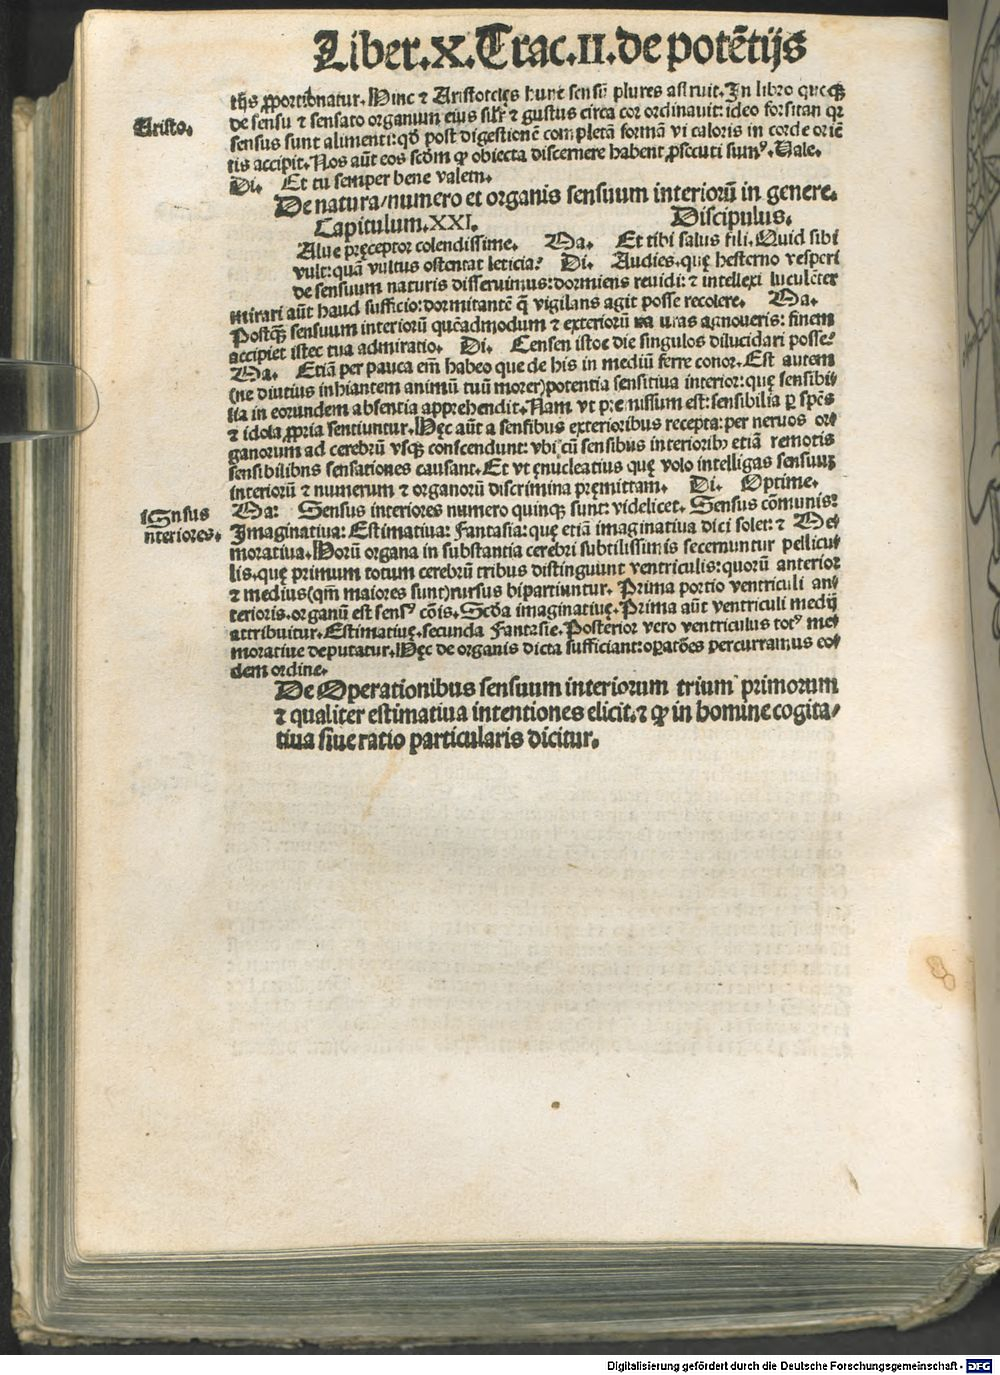 Liber.X.Trac.II.de potētijs
tijs ꝓportionatur. Hinc ⁊ Aristoteles hunc sensū plures astruit. In libro quoqꝫ
Aristo.
de sensu ⁊ sensato organum eius silr̄ ⁊ gustus circa cor ordinauit: ideo forsitan qr
sensus sunt alimenti: qd̄ post digestionē completā formā vi caloris in corde oriē
tis accipit. Nos aūt eos scdm̄ ꝙ obiecta discernere habent ꝓsecuti sumꝰ. Vale.
Di. Et tu semper bene valeto.
De natura/numero et organis sensuum interiorū in genere.
Capitulum.XXI. Discipulus.
Alue pręceptor colendissime. Ma. Et tibi salus fili. Quid sibi
vult: quā vultus ostentat leticia? Di. Audies. quę hesterno vesperi
de sensuum naturis disseruimus: dormiens reuidi: ⁊ intellexi luculēter
mirari aūt haud sufficio: dormitantē q̄ vigilans agit posse recolere. Ma.
Postqꝫ sensuum interiorū quēadmodum ⁊ exteriorū naturas agnoueris: finem
accipiet istec tua admiratio. Di. Censen istoc die singulos dilucidari posse?
Ma. Etiā per pauca em̄ habeo que de his in mediū ferre conor. Est autem
(ne diutius inhiantem animū tuū morer) potentia sensitiua interior: quę sensibi/
lia in eorundem absentia apprehendit. Nam vt premissum est: sensibilia ꝑ spēs
⁊ idola ꝓpria sentiuntur. Hęc aūt a sensibus exterioribus recepta: per neruos or/
ganorum ad cerebrū vsqꝫ conscendunt: vbi cū sensibus interioribꝫ etiā remotis
sensibilibus sensationes causant. Et vt ęnucleatius quę volo intelligas sensuum
interiorū ⁊ numerum ⁊ organorū discrimina pręmittam. Di. Optime.
iSnsus
nteriores.
Ma: Sensus interiores numero quinqꝫ sunt: videlicet. Sensus cōmunis:
Imaginatiua: Estimatiua: Fantasia: que etiā imaginatiua dici solet: ⁊ Me/
moratiua. Horū organa in substantia cerebri subtilissimis secernuntur pellicu/
lis. quę primum totum cerebrū tribus distinguunt ventriculis: quorū anterior
⁊ medius (qm̄ maiores sunt) rursus bipartiuntur. Prima portio ventriculi an/
terioris. organū est sensꝰ cōis. Scd̄a imaginatiuę. Prima aūt ventriculi medij
attribuitur. Estimatiuę. secunda Fantasie. Posterior vero ventriculus totꝰ me/
moratiue deputatur. Hęc de organis dicta sufficiant: oꝑatōes percurramus eo/
dem ordine.
De Operationibus sensuum interiorum trium primorum
⁊ qualiter estimatiua intentiones elicit. ⁊ ꝙ in homine cogita/
tiua siue ratio particularis dicitur.
Digitalisierung gefördert durch die Deutsche Forschungsgemeinschaft - DFG